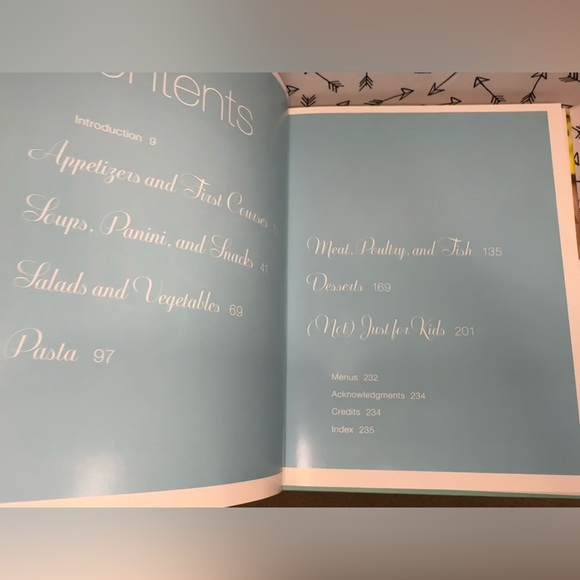 ontents
Introduction 9
Appetizers and First Courses
Soups, Panini, and Snacks 41
Salads and Vegetables 69
Pasta 97
Meat, Poultry, and Fish 135
Desserts 169
(Not) Just for Kids 201
Menus 232
Acknowledgments 234
Credits 234
Index 235